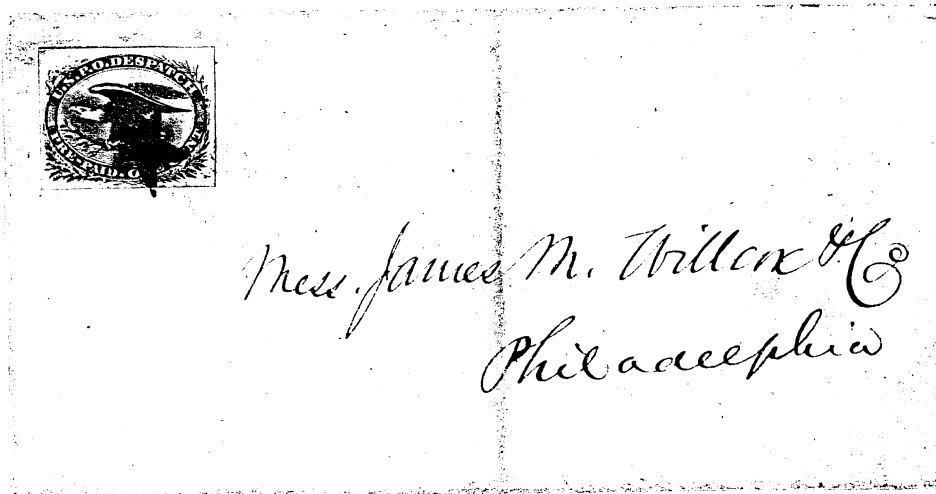 U.S.P.O. DESPATCH
PRE-PAID.
Mess. James M. Willcox & Co
Philadelphia